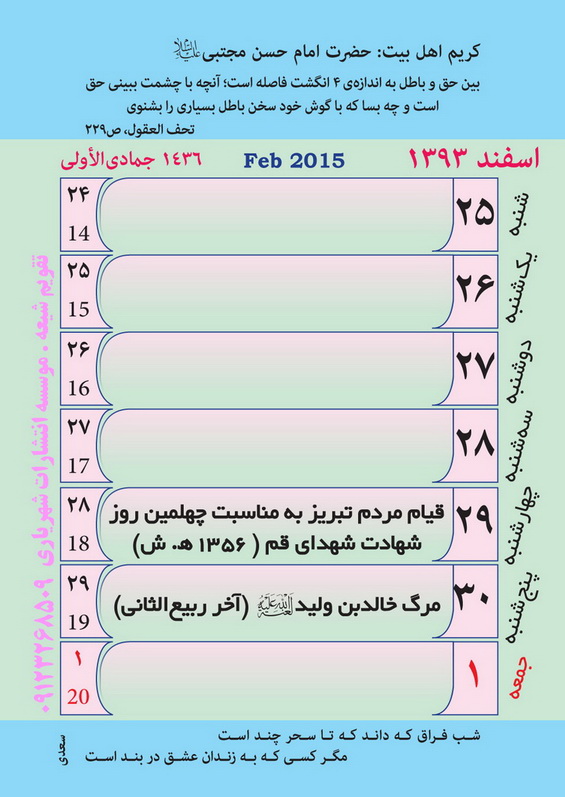 کریم اهل بیت: حضرت امام حسن مجتبی علیه السلام
بین حق و باطل به اندازه‌ی ۴ انگشت فاصله است؛ آنچه با چشمت ببینی حق
است و چه بسا که با گوش خود سخن باطل بسیاری را بشنوی
تحف العقول، ص۲۲۹
اسفند ۱۳۹۳ Feb 2015 ۱۴۳۶ جمادی‌الأولی
شنبه ۲۵ ۲۴ 14
یک‌شنبه ۲۶ ۲۵ 15
دوشنبه ۲۷ ۲۶ 16
سه‌شنبه ۲۸ ۲۷ 17
چهارشنبه ۲۹ ۲۸ 18
قیام مردم تبریز به مناسبت چهلمین روز
شهادت شهدای قم ( ۱۳۵۶ ه‍. ش)
پنج‌شنبه ۳۰ ۲۹ 19
مرگ خالدبن ولید (آخر ربیع‌الثانی)
جمعه ۱ ۱ 20
تقویم شیعه . موسسه انتشارات شهریاری ۰۹۱۲۳۲۶۸۵۰۹
شب فراق که داند که تا سحر چند است
مگر کسی که به زندان عشق در بند است
سعدی